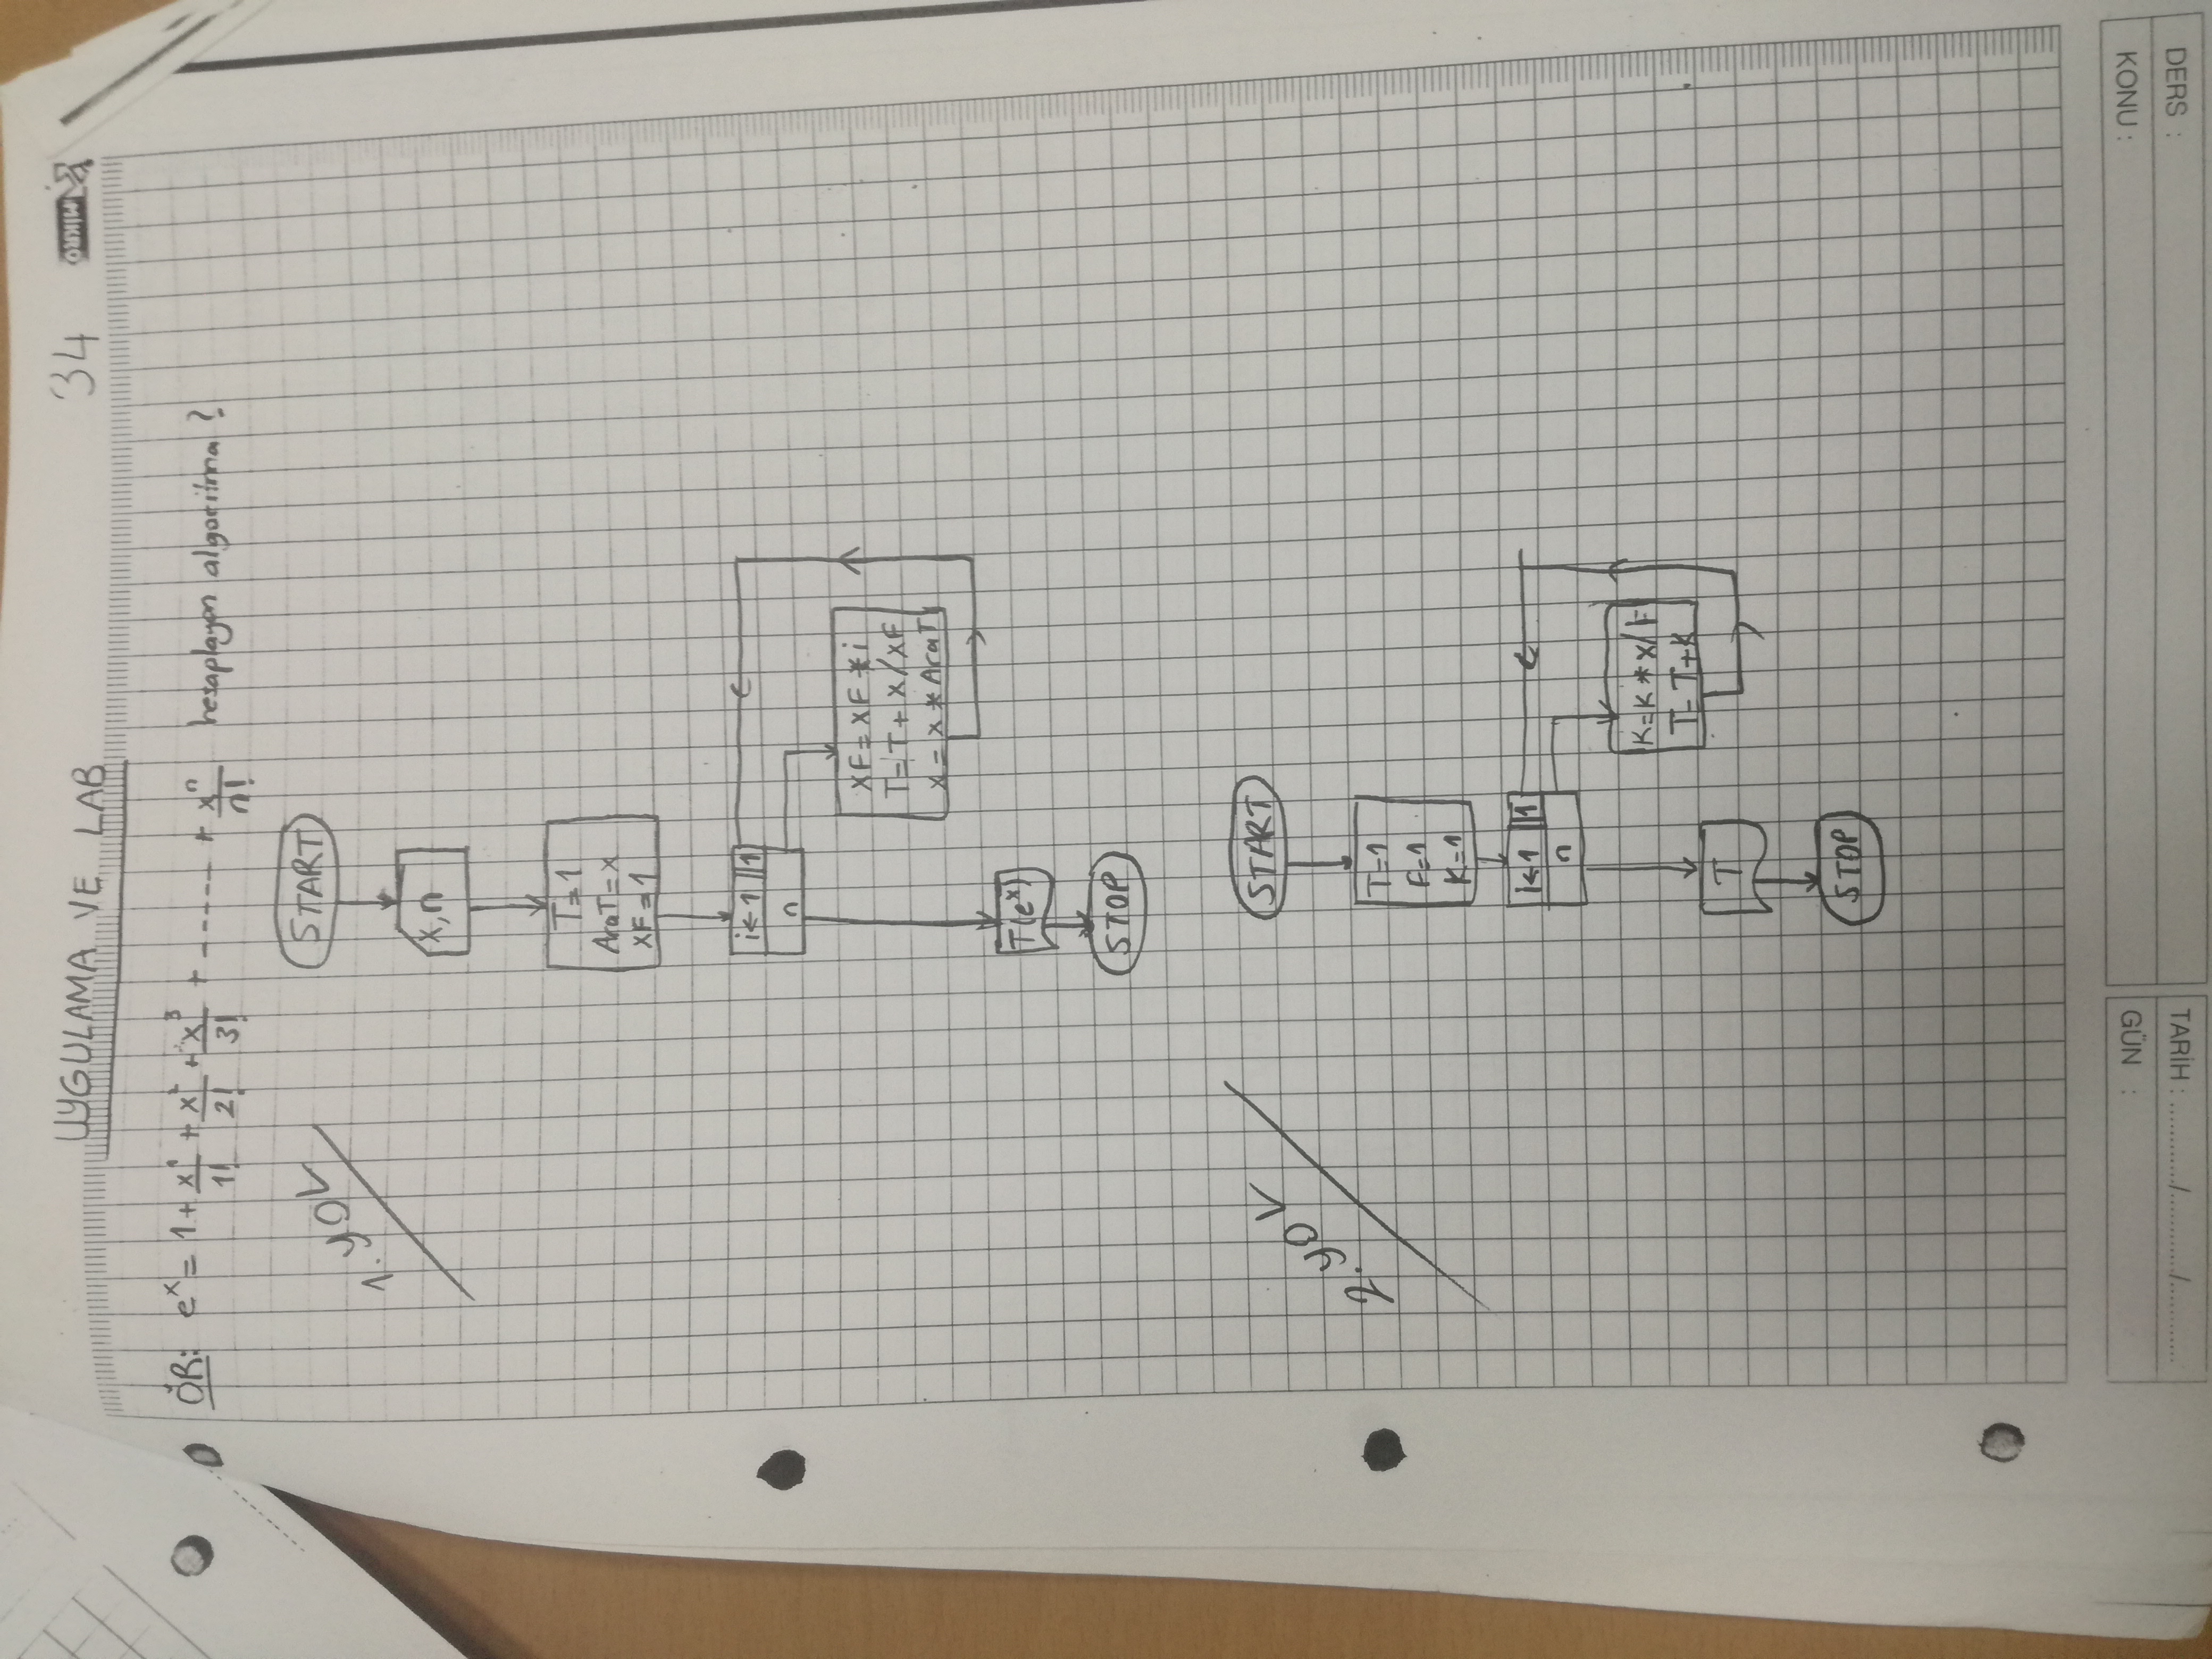 UYGULAMA VE LAB
34
MİKRO
ÖR: e^x = 1 + x^1/1! + x^2/2! + x^3/3! + ----- + x^n/n! hesaplayan algoritma ?
1. yol
START
x, n
T = 1
AraT = x
XF = 1
i ← 1 || 1
n
XF = XF * i
T = T + x / XF
x = x * AraT
T(e^x)
STOP
2. yol
START
T = 1
F = 1
K = 1
i ← 1 || 1
n
K = K * x / F
T = T + K
T
STOP
GÜN :
TARİH : ........../........../..........
KONU :
DERS :